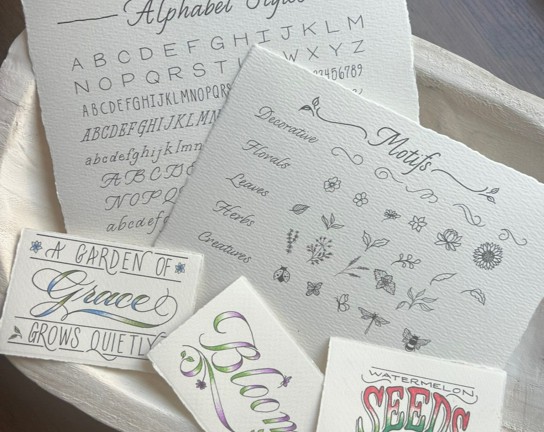 Alphabet Styles
A B C D E F G H I J K L M
N O P Q R S T U V W X Y Z
A B C D E F G H I J K L M N O P Q R
23456789
A B C D E F G H I J K L M N
a b c d e f g h i j k l m n
A B C D
N O P Q
a b c d e f
Motifs
Decorative
Florals
Leaves
Herbs
Creatures
A GARDEN OF
Grace
GROWS QUIETLY
Bloom
WATERMELON
SEEDS